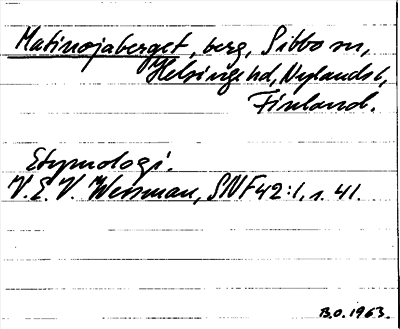 Matinojaberget, berg, Sibbo sn,
Helsinge hd, Nylands l,
Finland.
Etymologi.
V. E. V. Wessman, SNF 42:1, s. 41.
B.O. 1963.